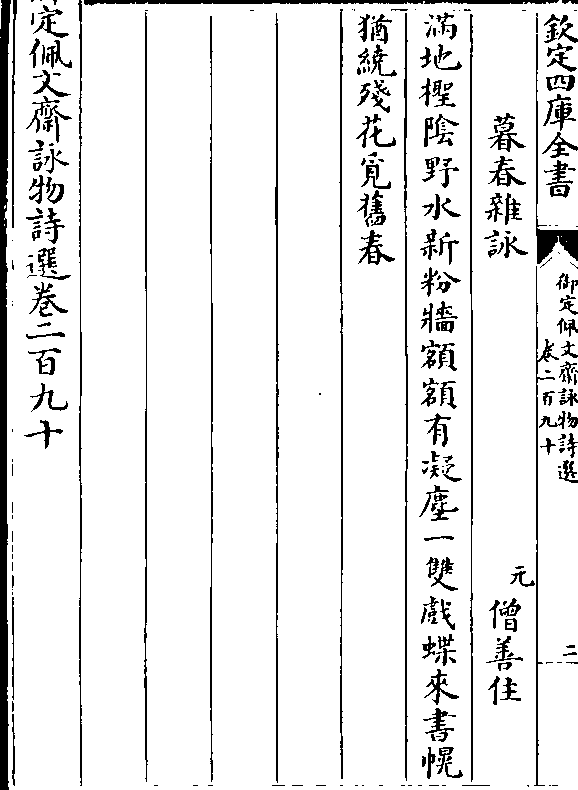 欽定四庫全書
御定佩文齋詠物詩選
卷二百九十
二
暮春雜詠
元 僧善住
滿地檉陰野水新粉牆額額有凝塵一雙戲蝶來書幌
猶繞殘花覓舊春
定佩文齋詠物詩選卷二百九十